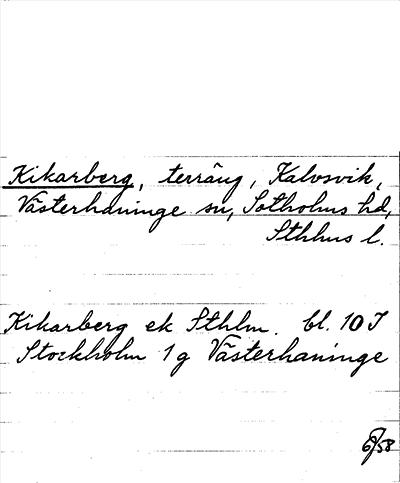 Kikarberg, terräng, Kalvsvik,
Västerhaninge sn, Sotholms hd,
Sthlms l.
Kikarberg ek Sthlm. bl. 10 I
Stockholm 1 g Västerhaninge